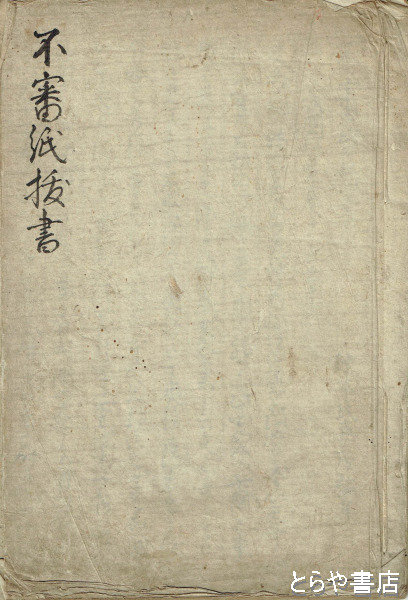 不審紙抜書
とらや書店